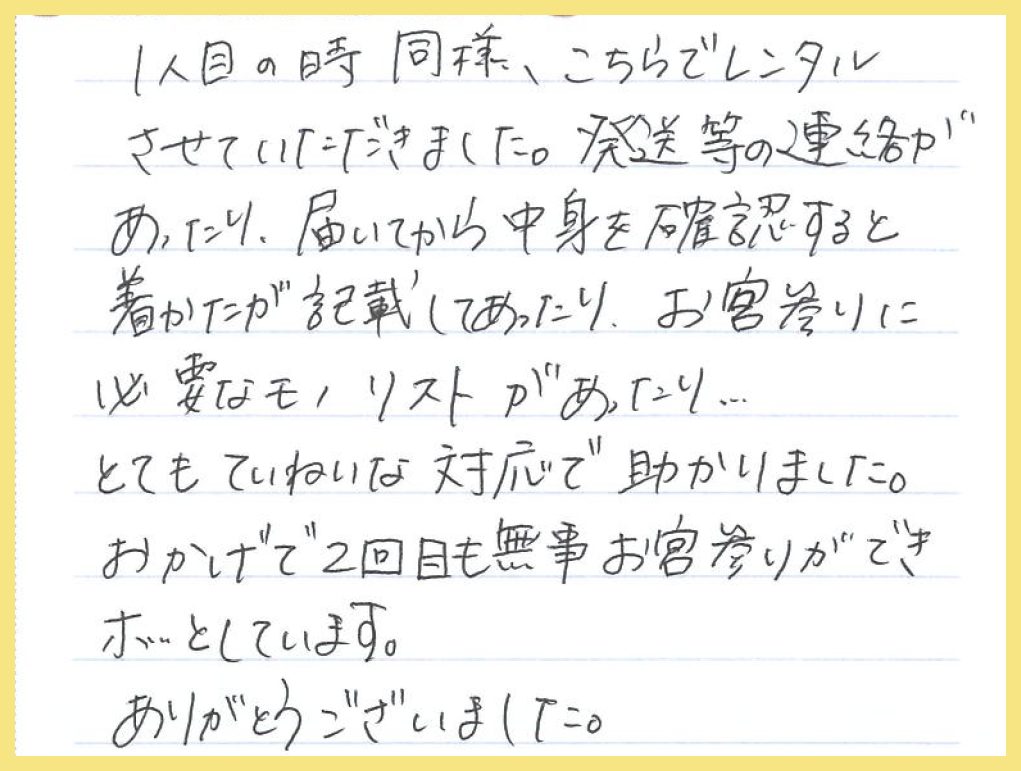 1人目の時同様、こちらでレンタル
させていただきました。発送等の連絡が
あったり、届いてから中身を確認すると
着かたが記載してあったり、お宮参りに
必要なモノリストがあったり…
とてもていねいな対応で助かりました。
おかげで2回目も無事お宮参りができ
ホッとしています。
ありがとうございました。